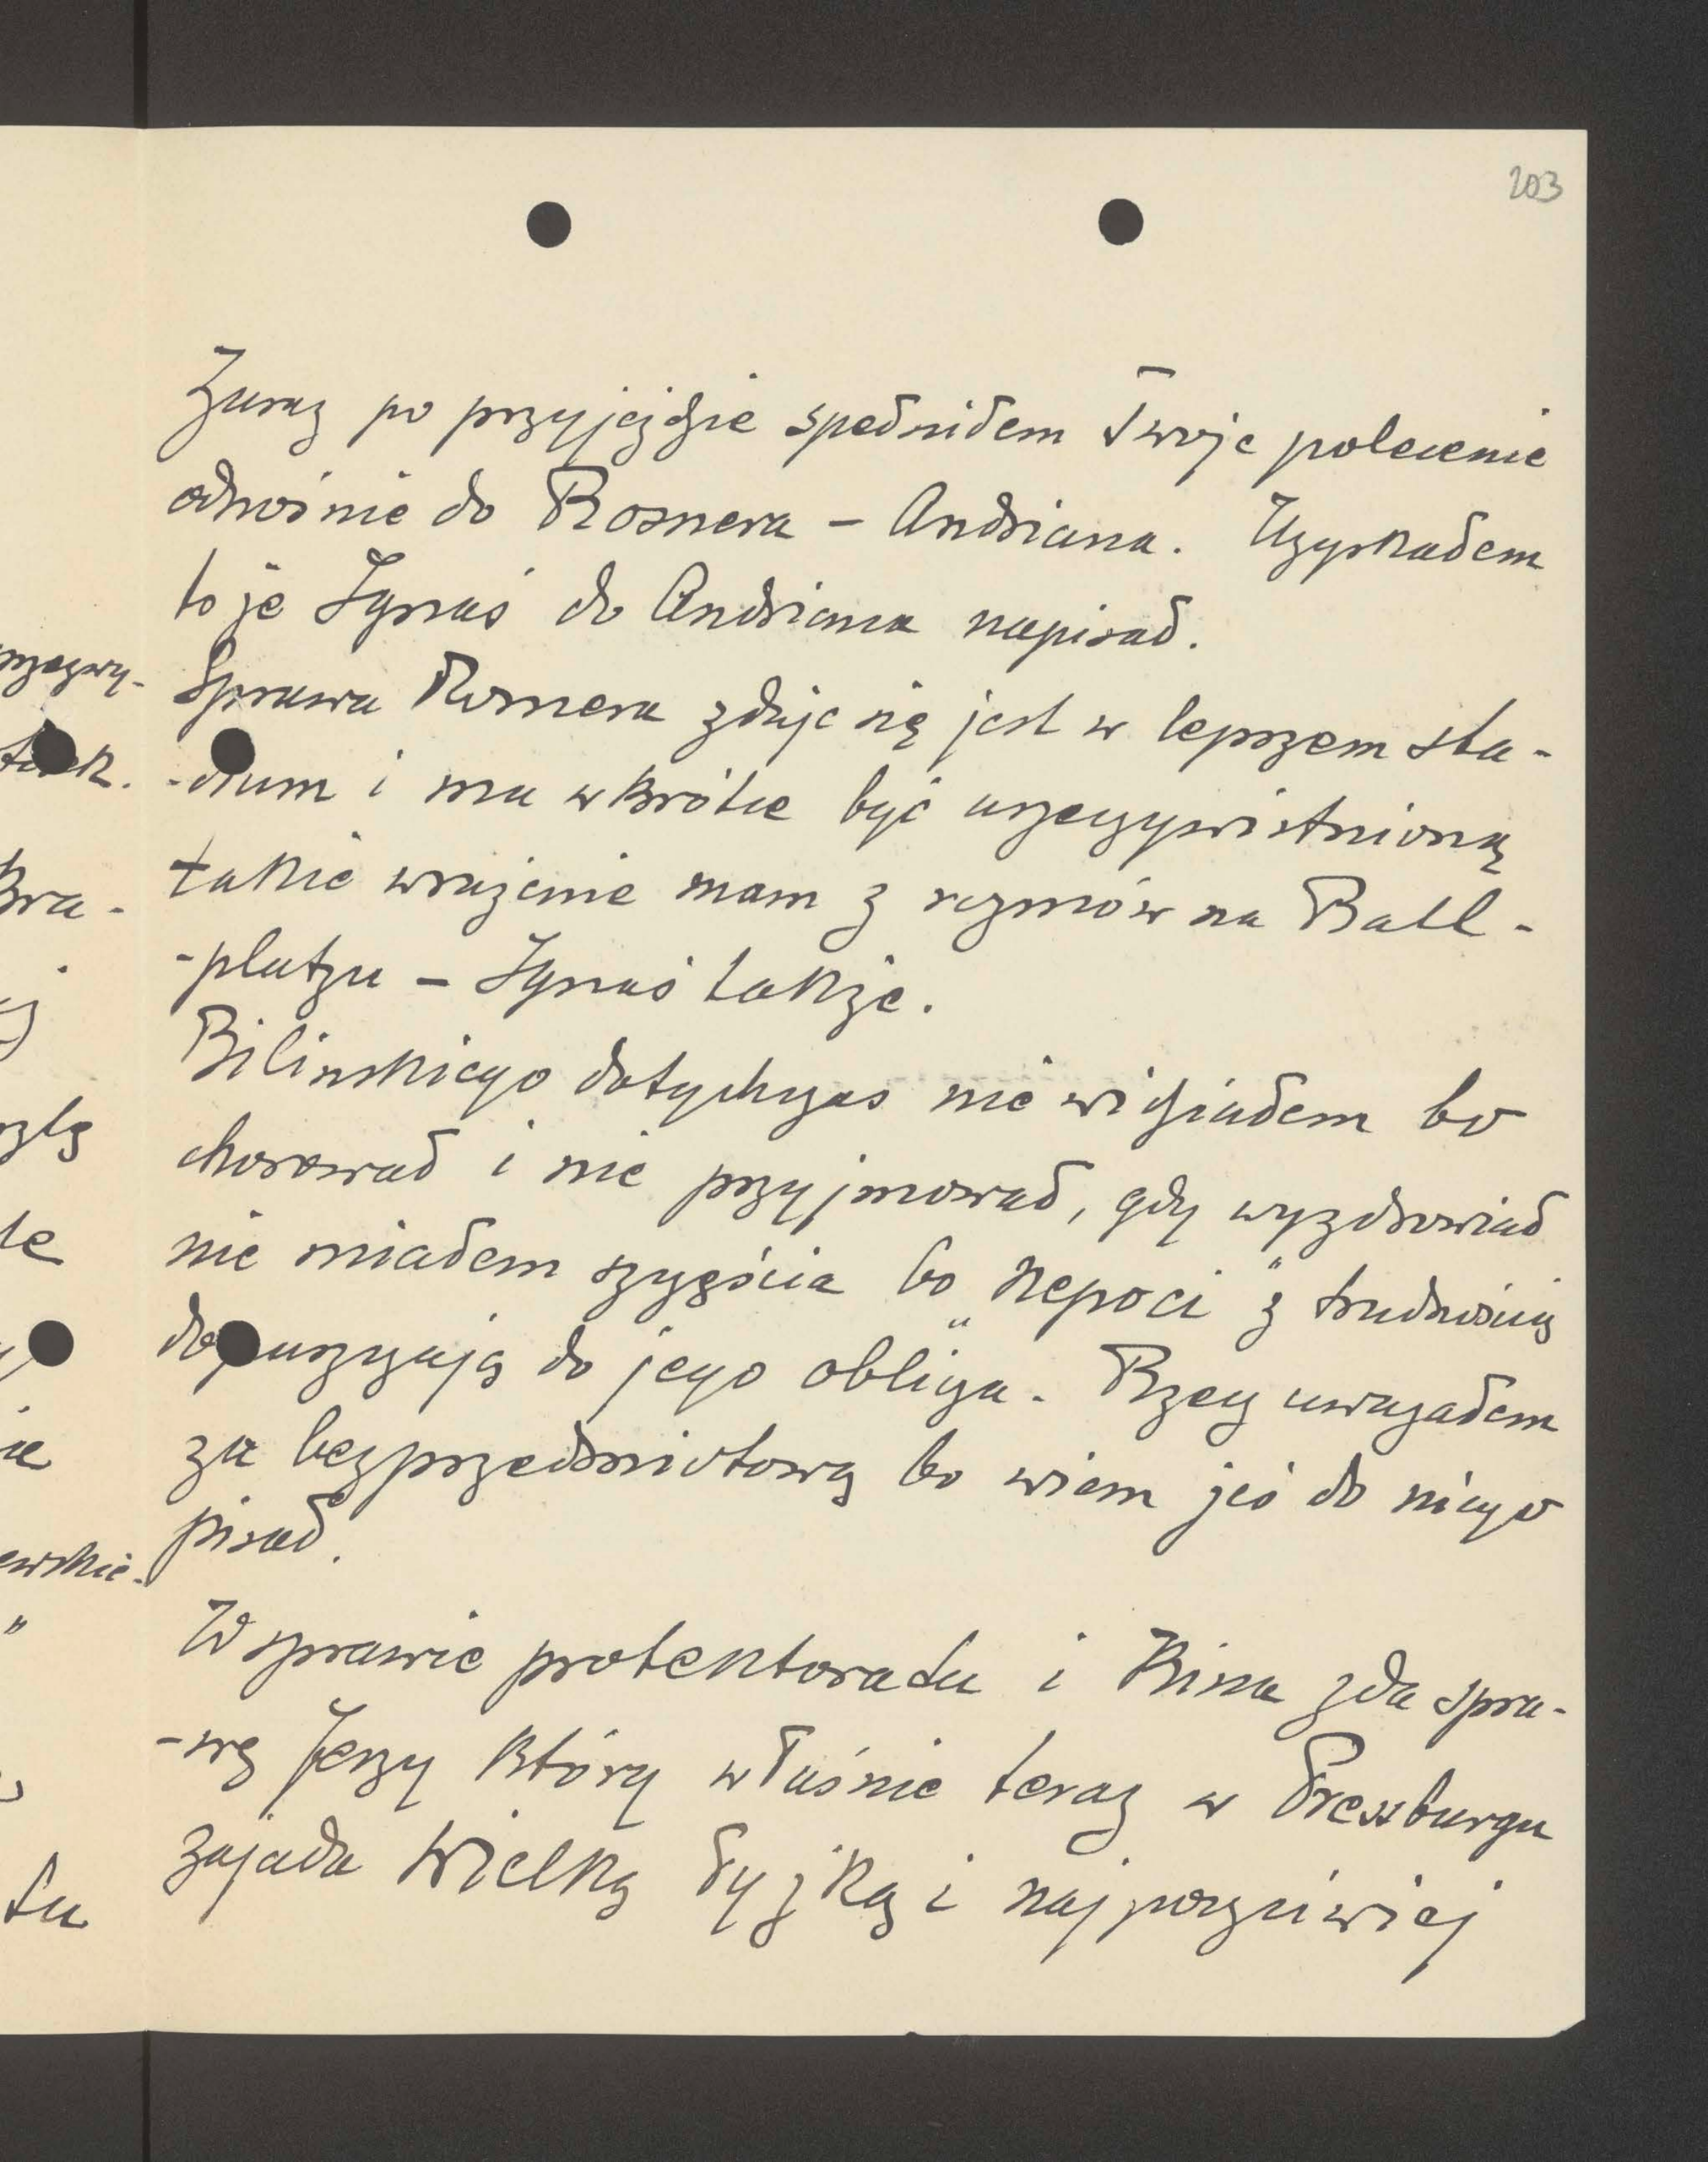 203
Zaraz po przyjeździe spełniłem Twoje polecenie
odnośnie do Rosnera – Andriana. Uzyskałem
to że Ignaś do Andriana napisał.
Sprawa Rosnera zdaje się jest w lepszem sta-
-dium i ma wkrótce być urzeczywistnioną
takie wrażenie mam z rozmów na Ball-
-platzu – Ignaś także.
Bilinskiego dotychczas nie widziałem bo
chorował i nie przyjmował, gdy wyzdrowiał
nie miałem szczęścia bo „nepoci" z trudnością
dopuszczają do jego oblicza. Rzecz uważałem
za bezprzedmiotową bo wiem żeś do niego
pisał.
W sprawie protektoratu i Kina zda spra-
-wę Jerzy który właśnie teraz w Pressburgu
zajada wielką łyżką i najpoczciwiej